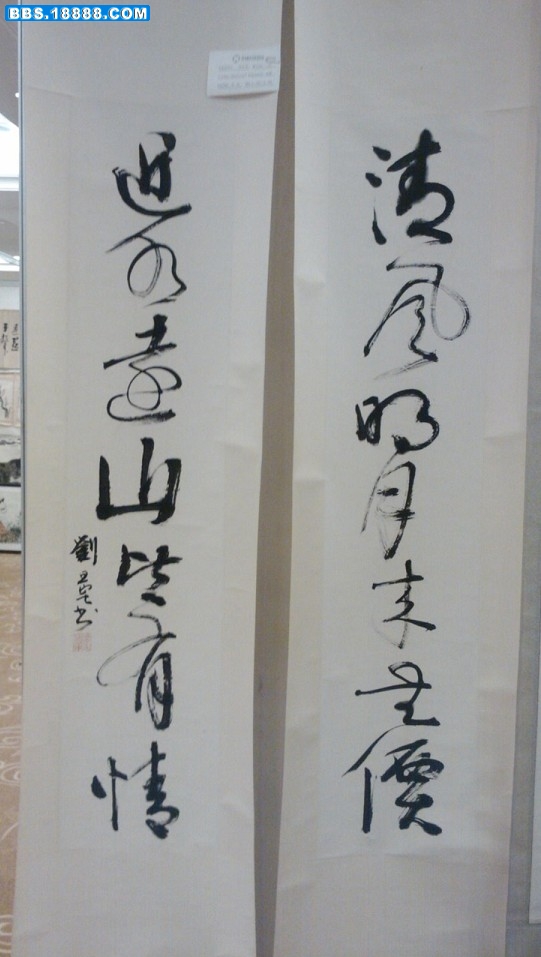 BBS.18888.COM
清風明月本無價
近水遠山皆有情